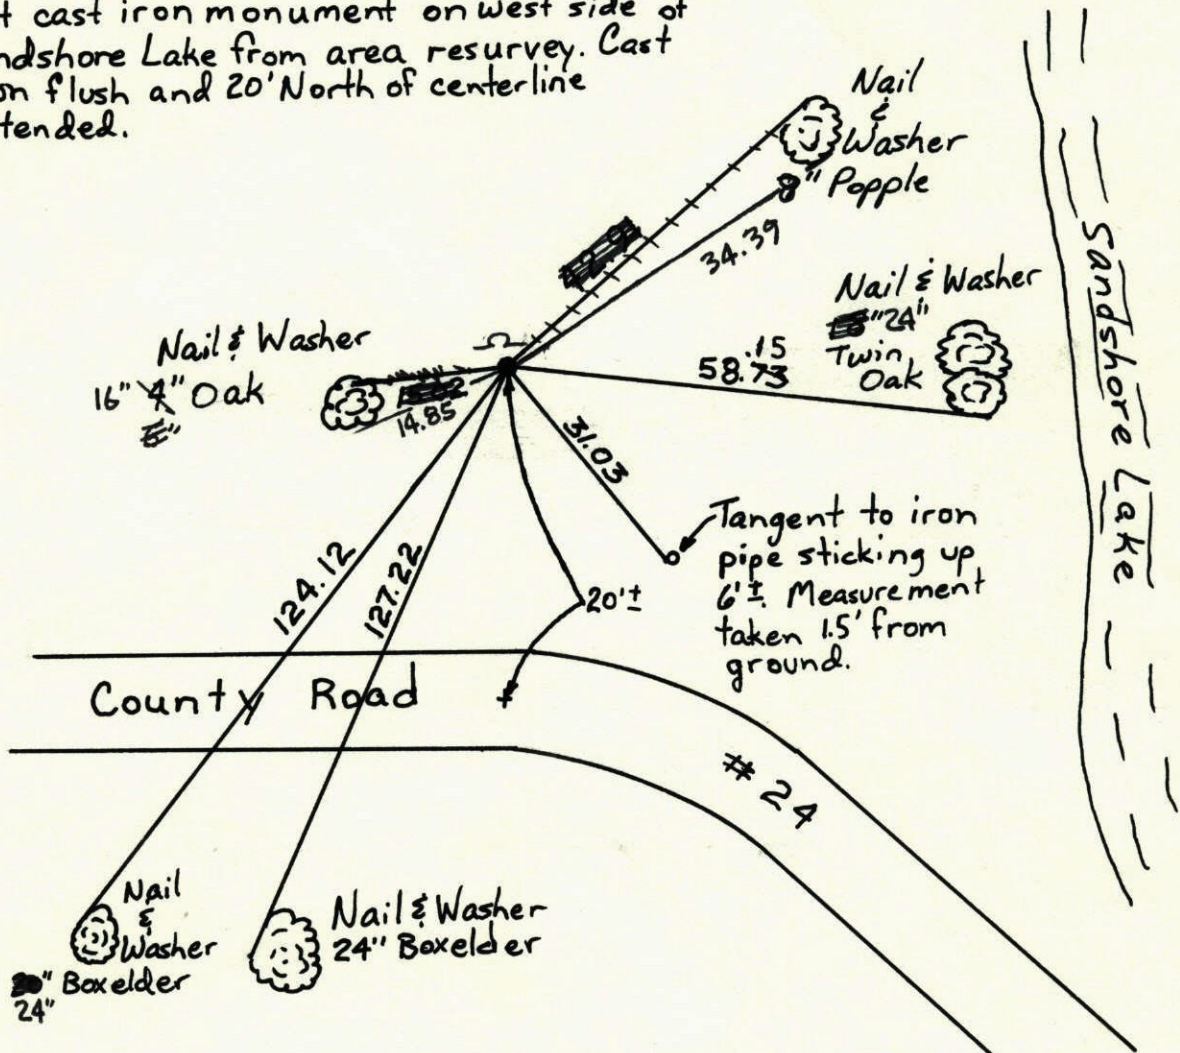 t cast iron monument on west side of
ndshore Lake from area resurvey. Cast
on flush and 20' North of centerline
tended.
Nail
&
Washer
8" Popple
34.39
Nail & Washer
"24"
Twin
Oak
.15
58.73
Sandshore Lake
Nail & Washer
16" 4" Oak
5"
14.85
31.03
Tangent to iron
pipe sticking up
6'±. Measurement
taken 1.5' from
ground.
20'±
124.12
127.22
County Road
# 24
Nail
&
Washer
20" Boxelder
24"
Nail & Washer
24" Boxelder